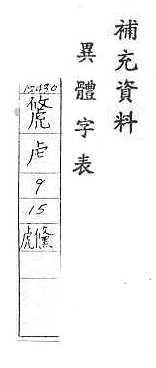 補充資料
異體字表
12430
虍
9
15
虪